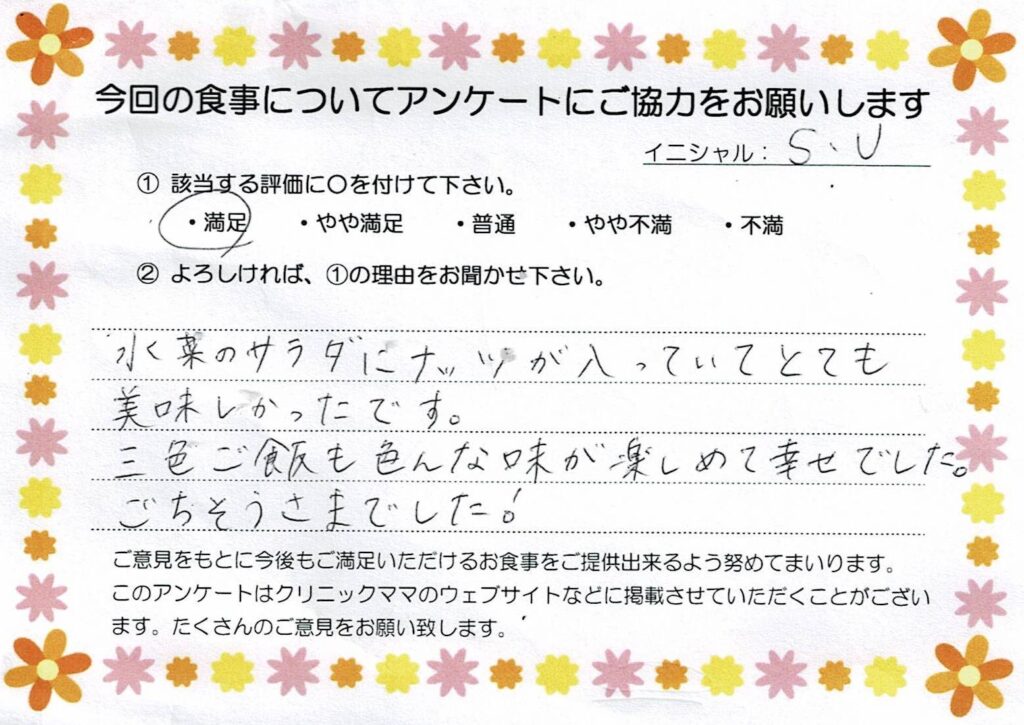 今回の食事についてアンケートにご協力をお願いします
イニシャル： S.U
① 該当する評価に〇を付けて下さい。
・満足 ・やや満足 ・普通 ・やや不満 ・不満
② よろしければ、①の理由をお聞かせ下さい。
水菜のサラダにナッツが入っていてとても
美味しかったです。
三色ご飯も色んな味が楽しめて幸せでした。
ごちそうさまでした！
ご意見をもとに今後もご満足いただけるお食事をご提供出来るよう努めてまいります。
このアンケートはクリニックママのウェブサイトなどに掲載させていただくことがござい
ます。たくさんのご意見をお願い致します。